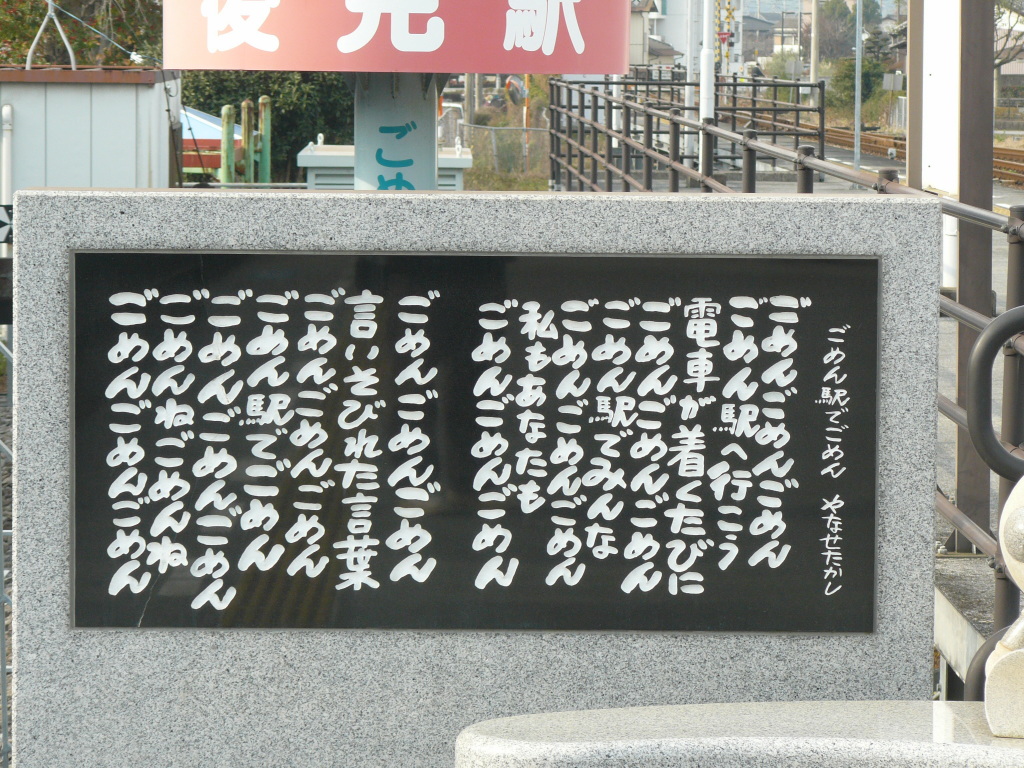 後免駅
ごめ
ごめん駅でごめん やなせたかし
ごめんごめんごめん
ごめん駅へ行こう
電車が着くたびに
ごめんごめんごめん
ごめん駅でみんな
ごめんごめんごめん
私もあなたも
ごめんごめんごめん
ごめんごめんごめん
言いそびれた言葉
ごめんごめんごめん
ごめん駅でごめん
ごめんごめんごめん
ごめんねごめんね
ごめんごめんごめん